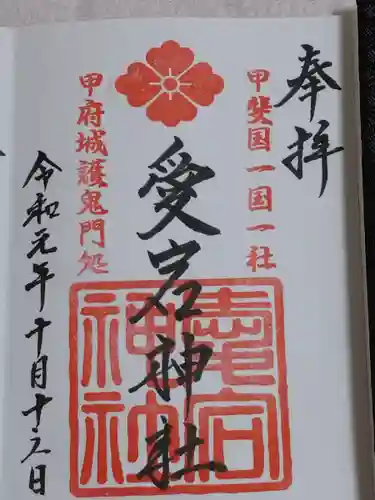 奉拝
甲斐国一国一社
愛宕神社
愛宕
神社
甲府城護鬼門処
令和元年十月十六日